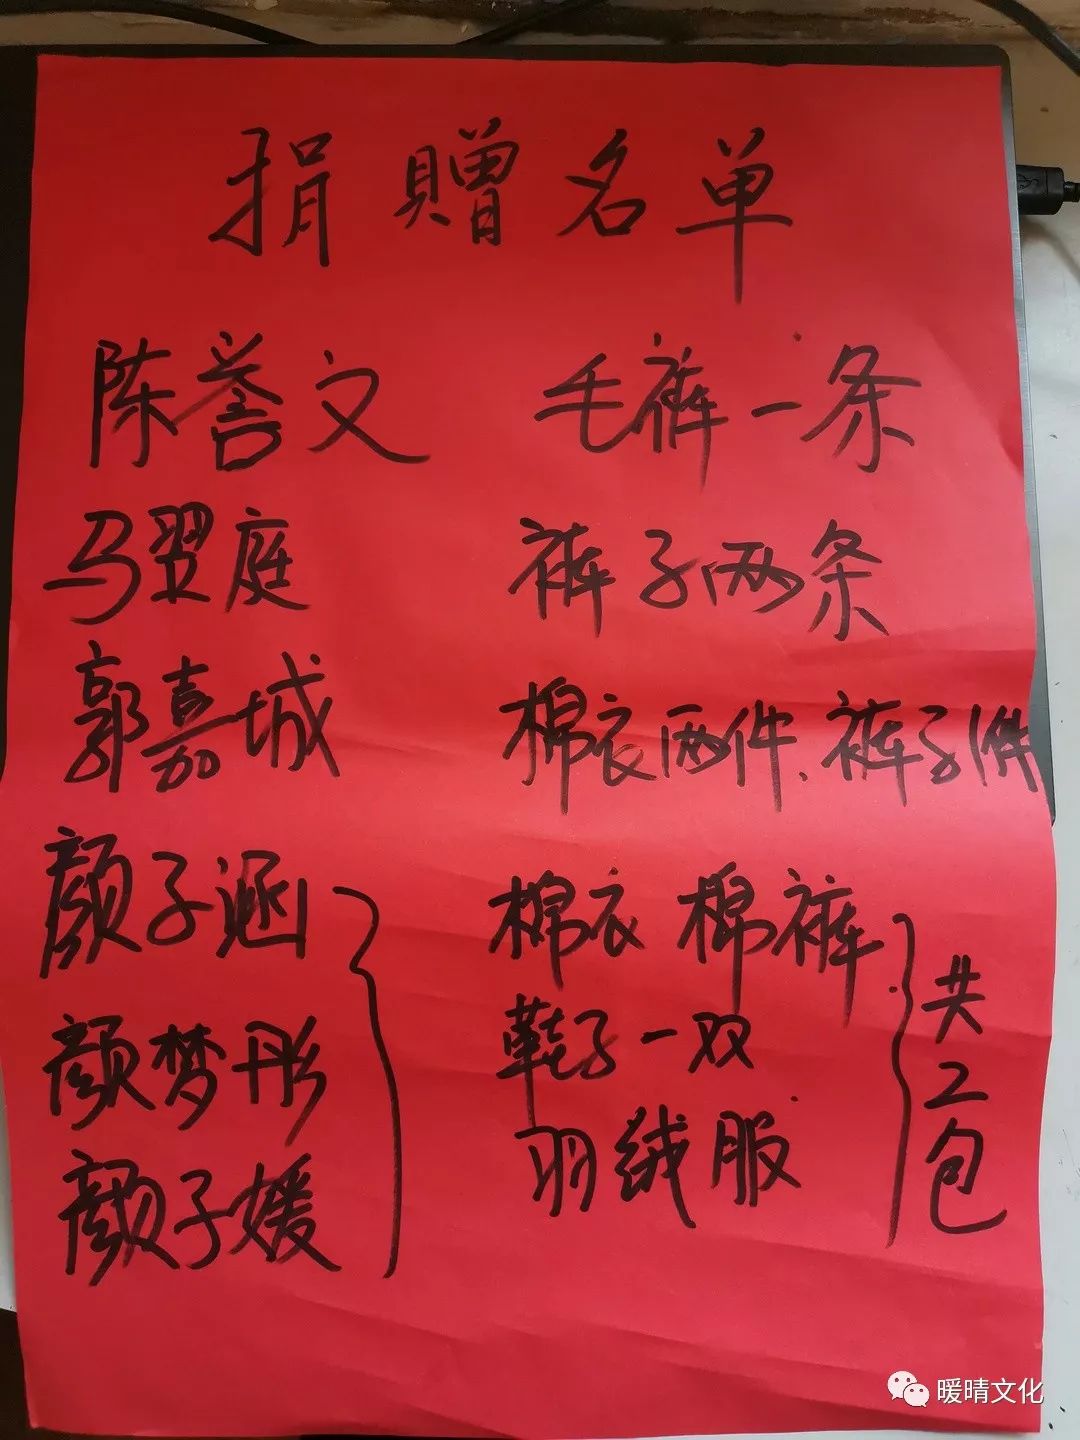 捐赠名单
陈誉文 毛裤一条
马翌庭 裤子两条
郭嘉城 棉衣两件、裤子1件
颜子涵 棉衣 棉裤
颜梦彤 鞋子一双
颜子媛 羽绒服
共2包
暖晴文化